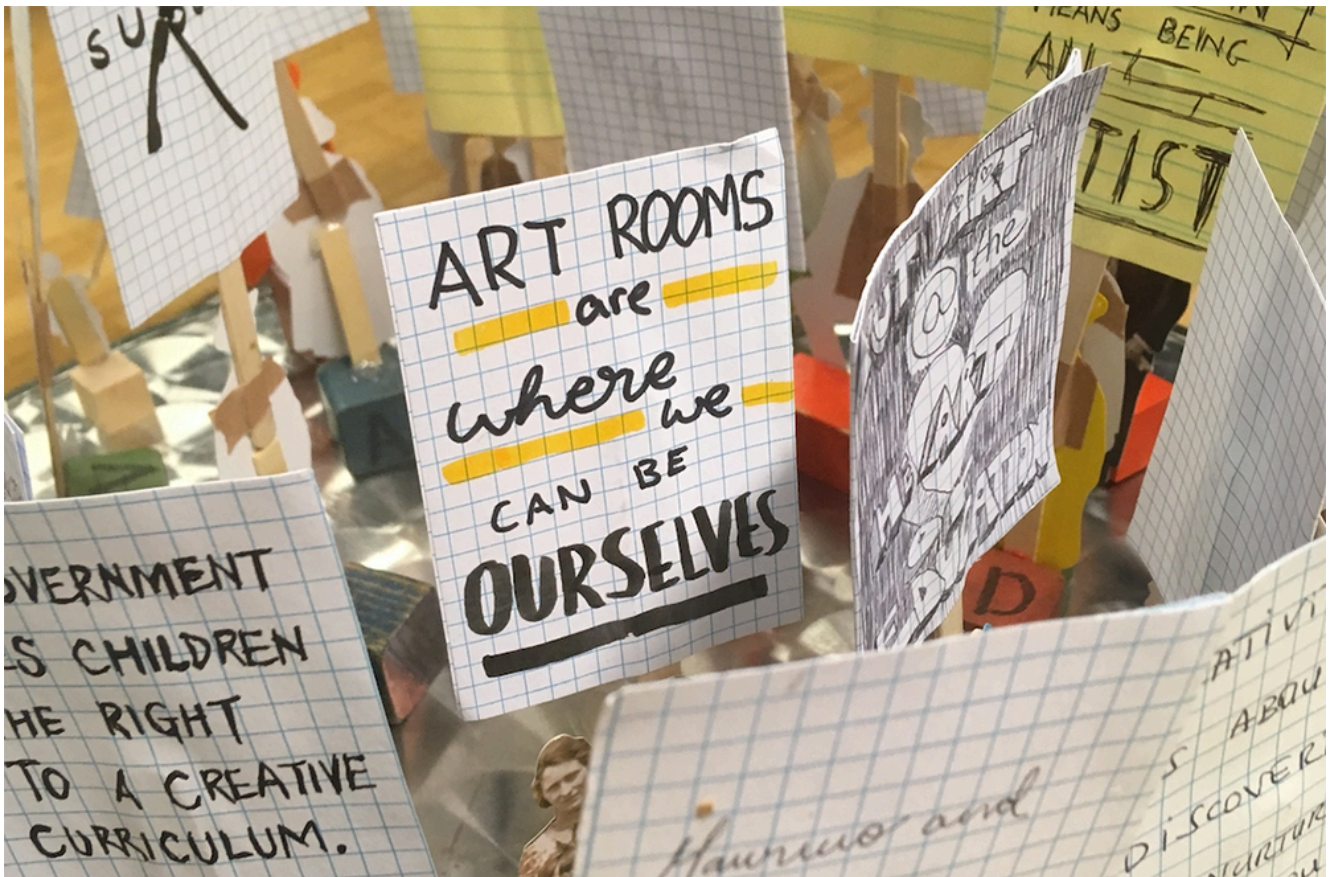 SUR
MEANS BEING
AN
TIST
ART ROOMS
are
where
we
CAN BE
OURSELVES
START
@ the
ART
EDUCATION
OVERNMENT
ES CHILDREN
HE RIGHT
TO A CREATIVE
CURRICULUM.
A
D
and
ATIVI
S ABOU
DISCOVER
NURTUR